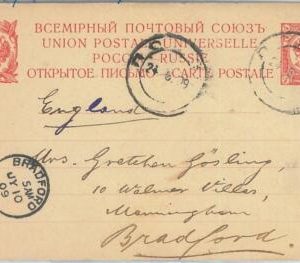 ВСЕМІРНЫЙ ПОЧТОВЫЙ СОЮЗЪ
UNION POSTALE UNIVERSELLE
РОССІЯ RUSSIE
ОТКРЫТОЕ ПИСЬМО CARTE POSTALE
England
BRADFORD
5 AM
JY 10
09
Mrs. Gretchen Gösling,
10 Walmer Villas,
Manningham
Bradford.